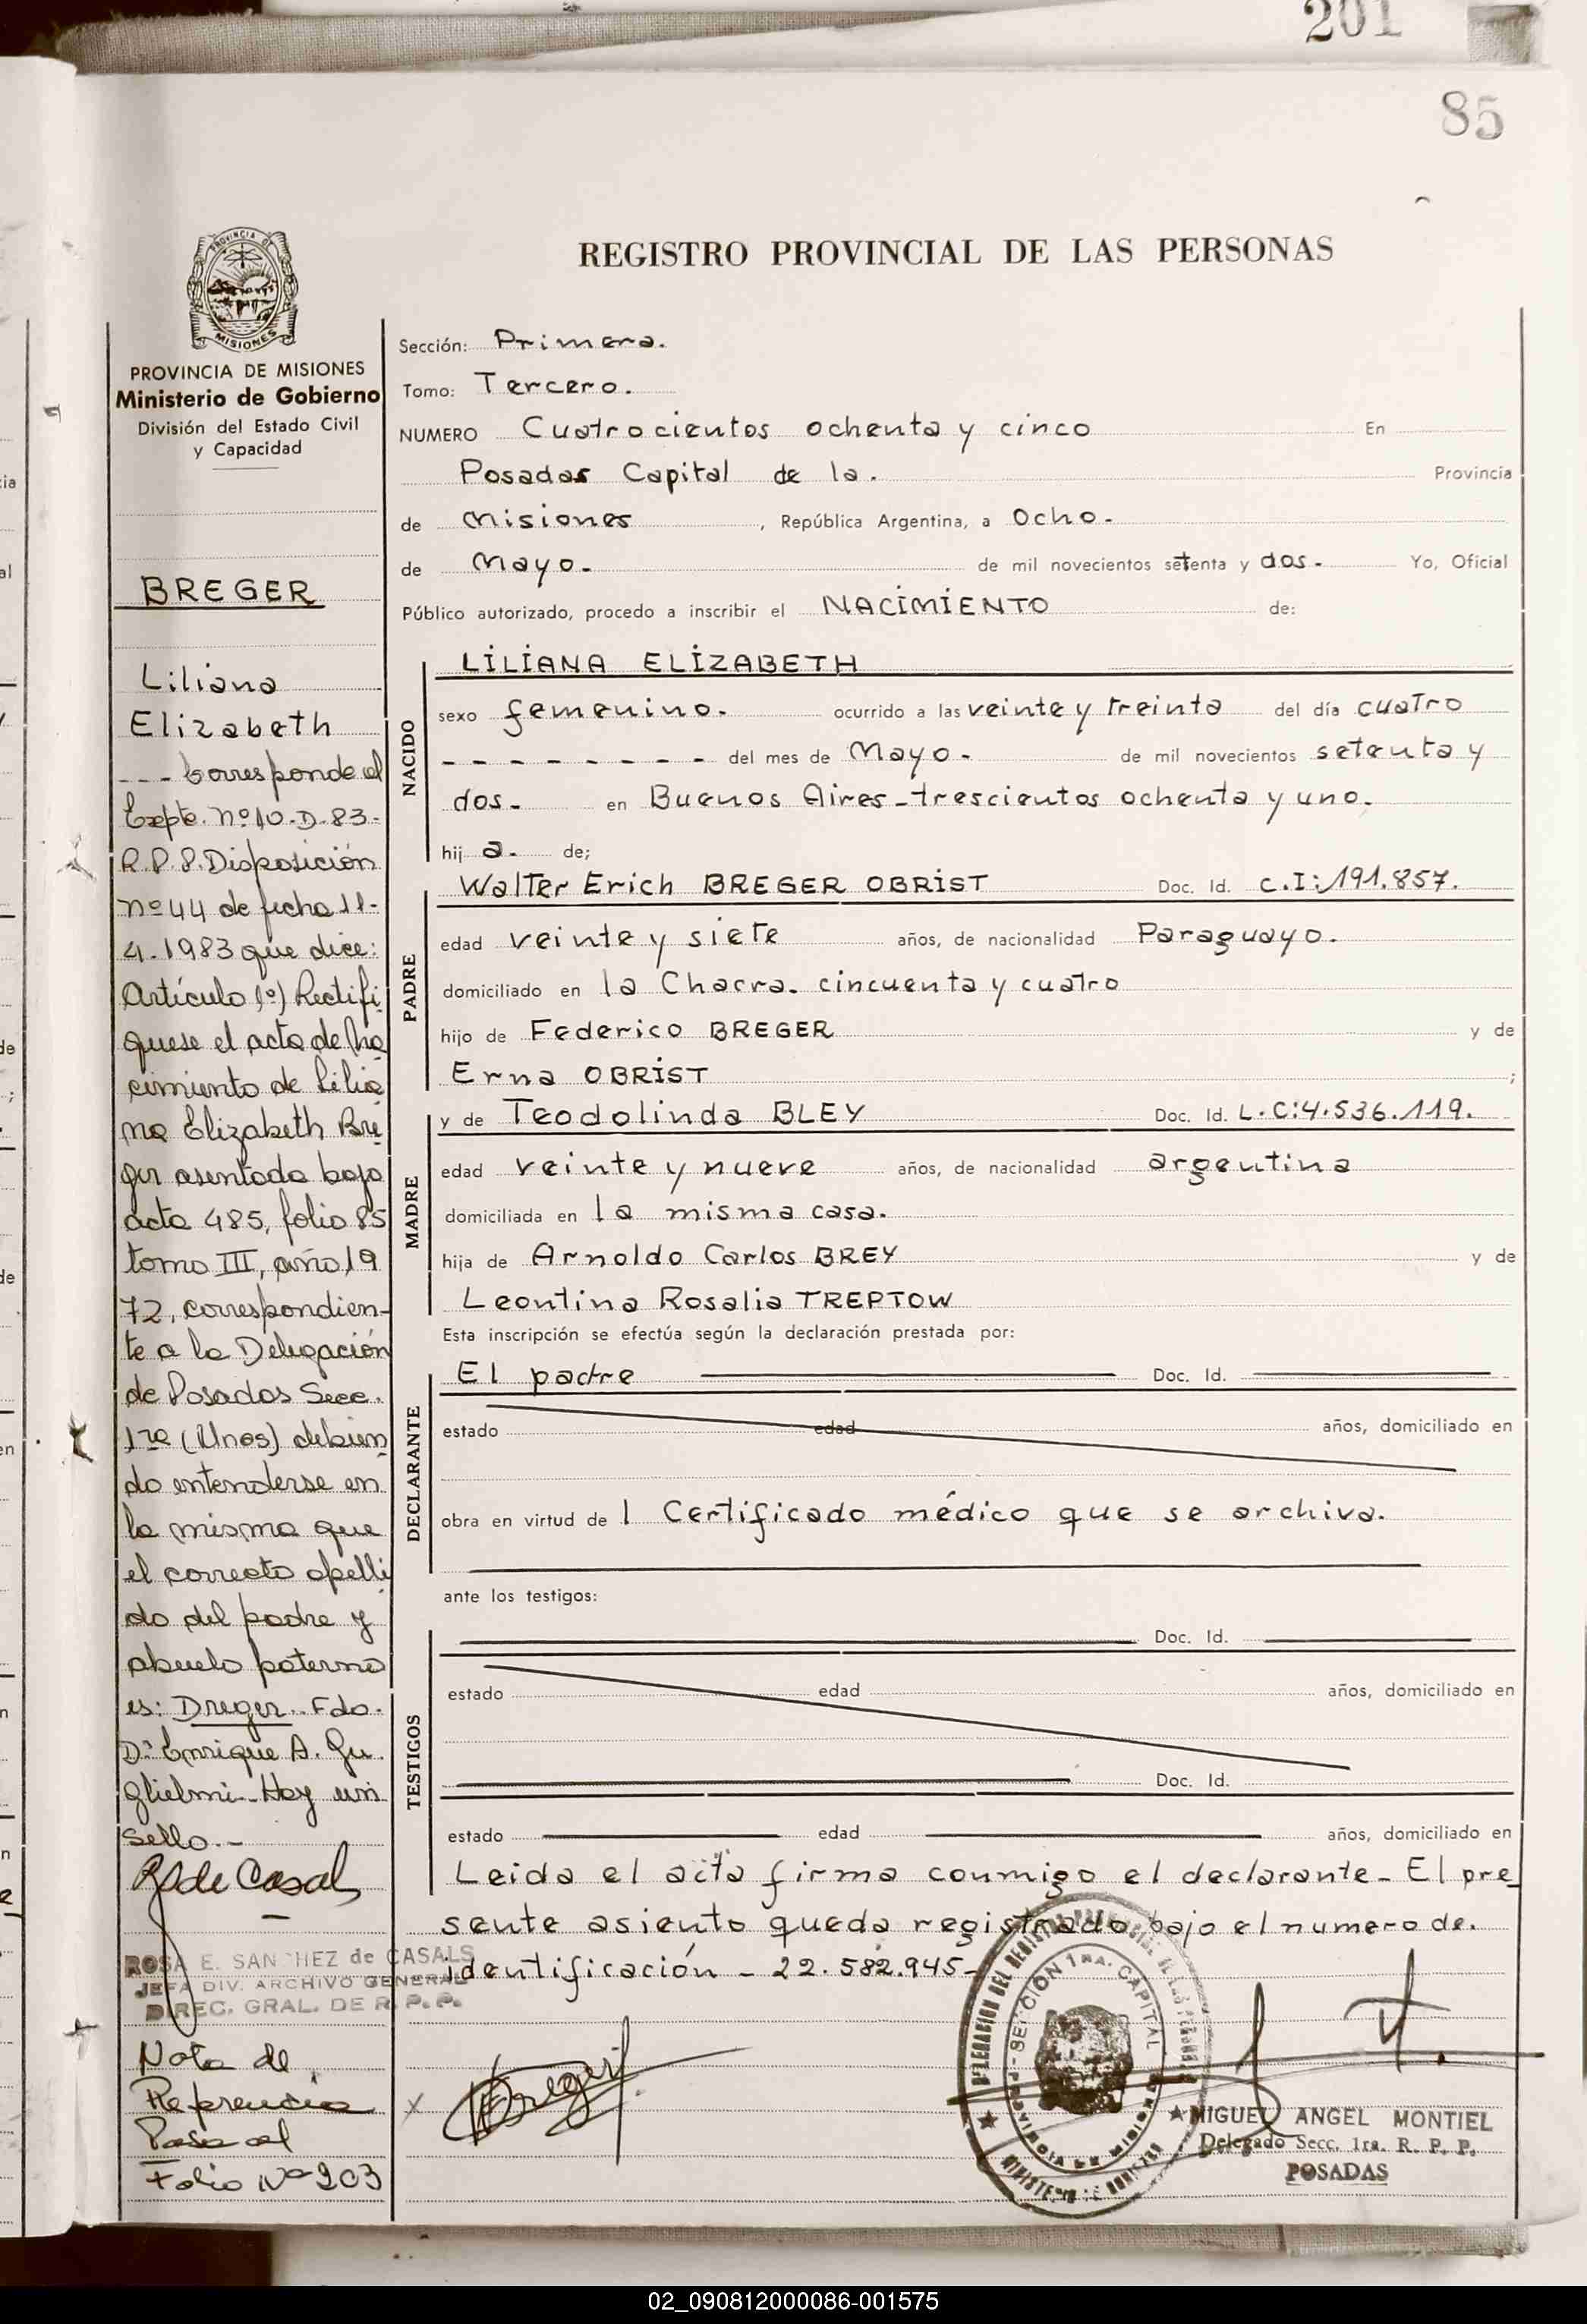 201
85
REGISTRO PROVINCIAL DE LAS PERSONAS
PROVINCIA DE
MISIONES
PROVINCIA DE MISIONES
Ministerio de Gobierno
División del Estado Civil
y Capacidad
BREGER
Liliana
Elizabeth
--- Corresponde al
Expte. nº 10-D-83-
R.P.P. Disposición
nº 44 de fecha 11-
4-1983 que dice:
Artículo 1º) Rectifi
quese el acta de na
cimiento de Lilia
na Elizabeth Bre
ger asentada bajo
acta 485, folio 85
tomo III, año 19
72, correspondien-
te a la Delegación
de Posadas Secc.
1ra (Unos) debien
do entenderse en
la misma que
el correcto apelli
do del padre y
abuelo paterno
es: Dreger.. Fdo.
Dr Enrique A. Gu
glielmi- Hay un
sello.-
RS de Casals
ROSA E. SANCHEZ de CASALS
JEFA DIV. ARCHIVO GENERAL
DIREC. GRAL. DE R. P. P.
Nota de
Referencia
Pasa al
Folio Nº 203
Sección: Primera.
Tomo: Tercero.
NUMERO Cuatrocientos ochenta y cinco En
Posadas Capital de la. Provincia
de Misiones , República Argentina, a Ocho.
de Mayo. de mil novecientos setenta y dos. Yo, Oficial
Público autorizado, procedo a inscribir el NACIMIENTO de:
NACIDO
LILIANA ELIZABETH
sexo femenino. ocurrido a las veinte y treinta del día cuatro
- - - - - - - - - del mes de Mayo. de mil novecientos setenta y
dos. en Buenos Aires-trescientos ochenta y uno.
hij a. de;
PADRE
Walter Erich BREGER OBRIST Doc. Id. C.I:191.857.
edad veinte y siete años, de nacionalidad Paraguayo.
domiciliado en la Chacra. cincuenta y cuatro
hijo de Federico BREGER y de
Erna OBRIST ;
MADRE
y de Teodolinda BLEY Doc. Id. L.C:4.536.119.
edad veinte y nueve años, de nacionalidad argentina
domiciliada en la misma casa.
hija de Arnoldo Carlos BREY y de
Leontina Rosalia TREPTOW
Esta inscripción se efectúa según la declaración prestada por:
DECLARANTE
El padre Doc. Id.
estado edad años, domiciliado en
obra en virtud de 1 Certificado médico que se archiva.
ante los testigos:
TESTIGOS
Doc. Id.
estado edad años, domiciliado en
Doc. Id.
estado edad años, domiciliado en
Leida el acta firma conmigo el declarante- El pre
sente asiento queda registrado bajo el numero de.
identificación - 22.582.945-
SECCION 1RA. CAPITAL
PROVINCIA DE MISIONES
X WBreger
MIGUEL ANGEL MONTIEL
Delegado Secc. 1ra. R. P. P.
POSADAS
02_090812000086-001575